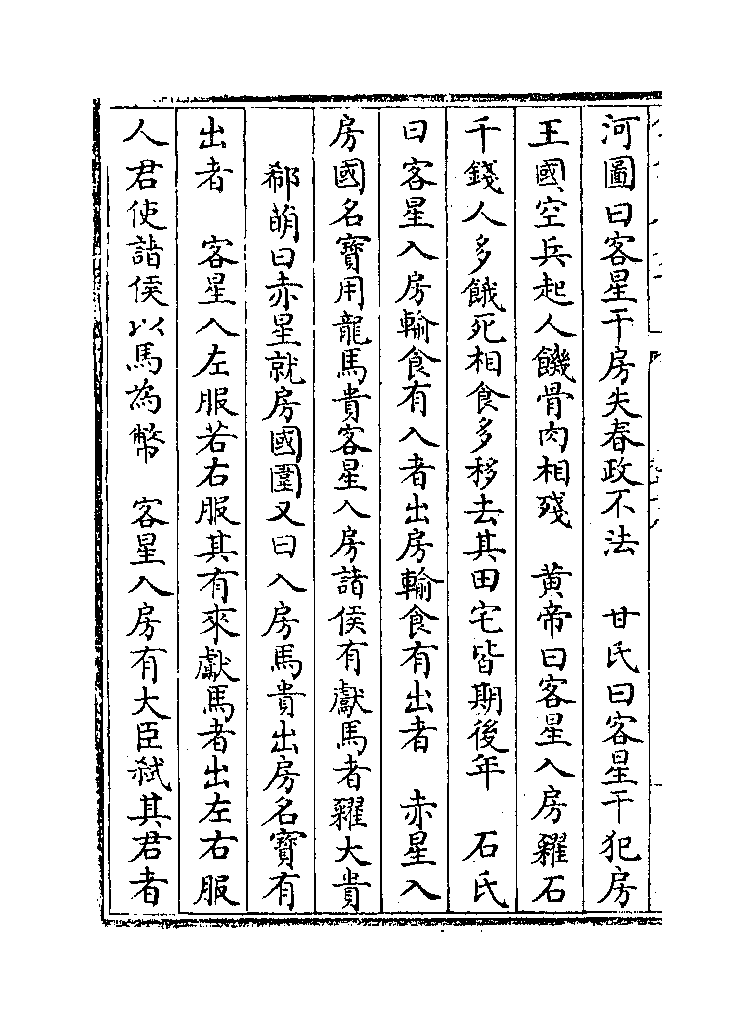 河圖曰客星干房失春政不法　甘氏曰客星干犯房
王國空兵起人饑骨肉相殘　黄帝曰客星入房糴石
千錢人多餓死相食多移去其田宅皆期後年　石氏
曰客星入房輸食有入者出房輸食有出者　赤星入
房國名寶用龍馬貴客星入房諸侯有獻馬者糴大貴
郗萌曰赤星就房國圍又曰入房馬貴出房名寶有
出者　客星入左服若右服其有來獻馬者出左右服
人君使詣侯以馬為幣　客星入房有大臣弑其君者